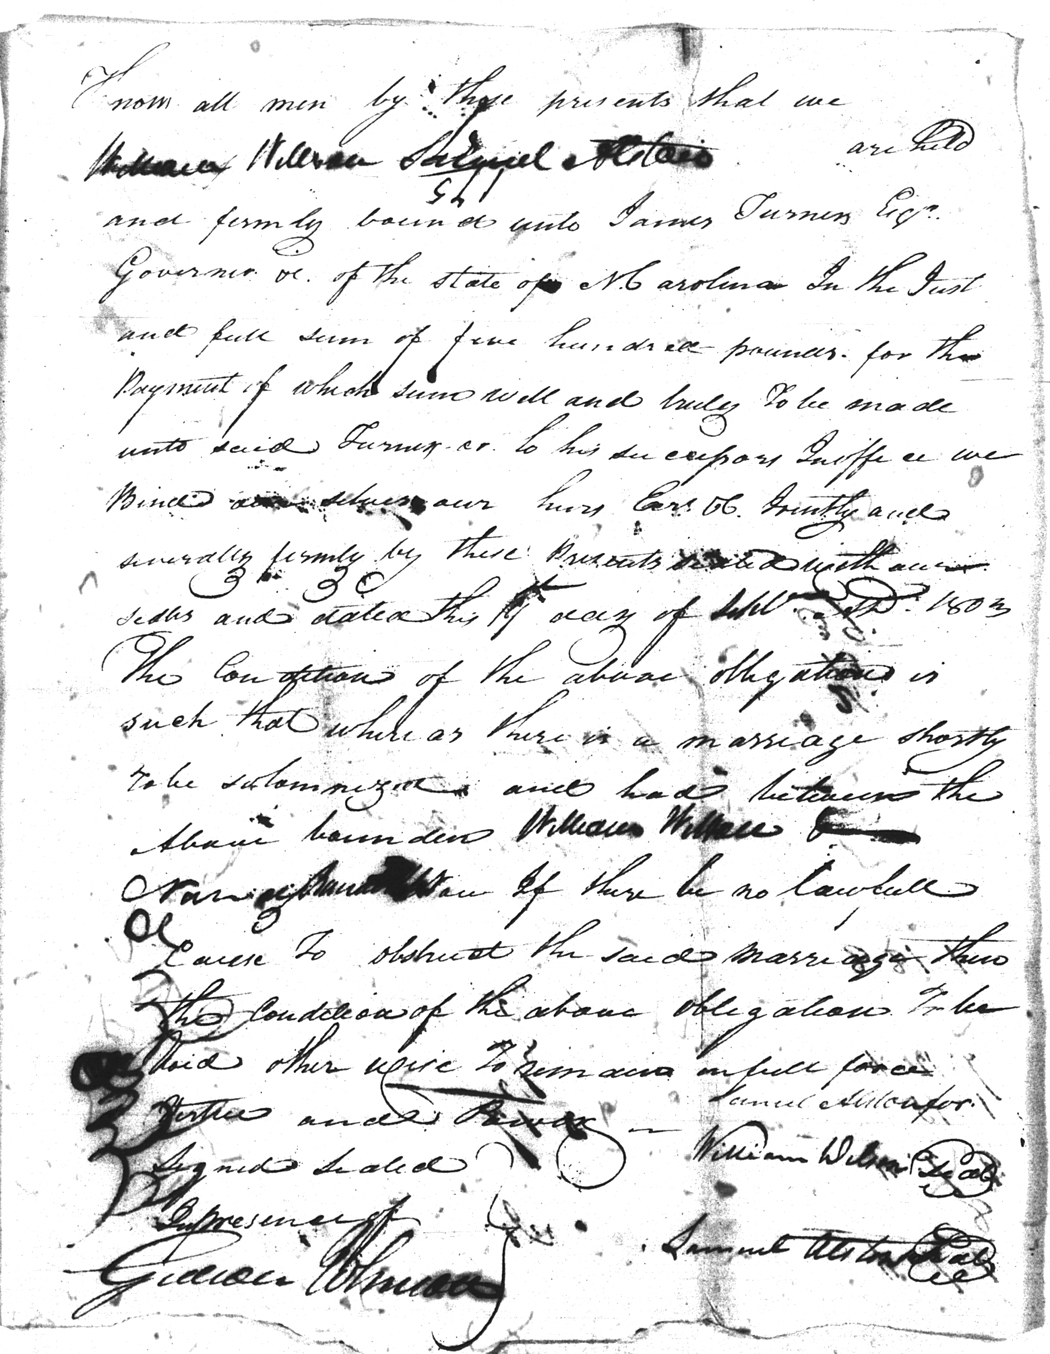 Know all men by these presents that we
William Willson Samuel Alston are held
and firmly bound unto James Turner Esqr.
Governor &c. of the state of N. Carolina In the Just
and full sum of five hundred pounds. for the
Payment of which sum well and truly To be made
unto said Turner or to his successors In office we
Bind our selves our heirs Exrs &C. Jointly and
severally firmly by these Presents sealed with our
seals and dated this day of Sept. 1803
The Condition of the above obligation is
such that where as there is a marriage shortly
To be solomnized and had between the
Above bounden William Willson &
Nancy If there be no lawfull
Cause To obstruct the said marriage then
the Condition of the above obligation To be
Void other wise To remain in full force
Vertue and Power
Samuel Alston for
Signed sealed
William Wilson Seal
In presence of
Samuel Alston Seal
Gideon Johnson